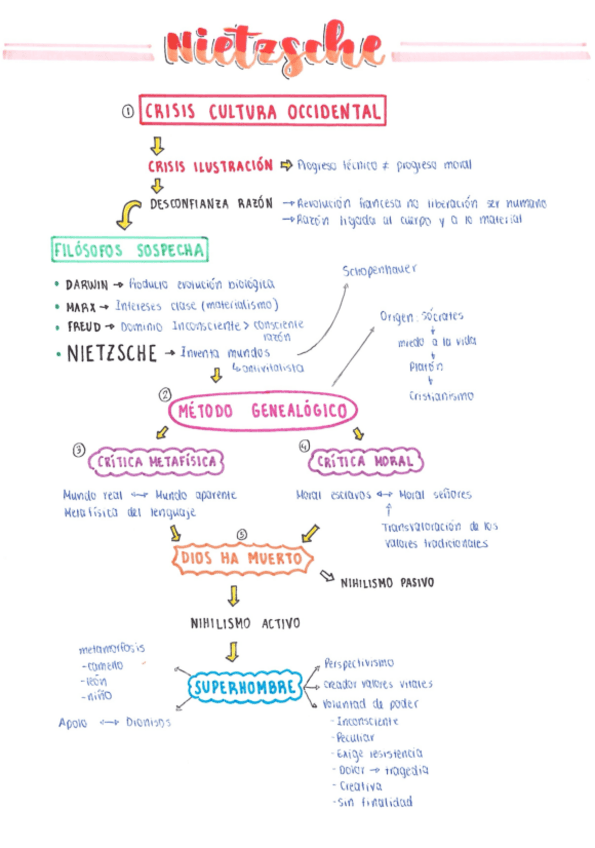 Nietzsche
① CRISIS CULTURA OCCIDENTAL
CRISIS ILUSTRACIÓN ⇒ Progreso técnico ≠ progreso moral
DESCONFIANZA RAZÓN → Revolución francesa no liberación ser humano
→ Razón ligada al cuerpo y a lo material
FILÓSOFOS SOSPECHA
• DARWIN → Producto evolución biológica
• MARX → Intereses clase (materialismo)
• FREUD → Dominio Inconsciente > consciente
razón
• NIETZSCHE → Inventa mundos
↳ antivitalista
Schopenhauer
Origen: Sócrates
↓
miedo a la vida
↓
Platón
↓
Cristianismo
② MÉTODO GENEALÓGICO
③ CRÍTICA METAFÍSICA
Mundo real ↔ Mundo aparente
Metafísica del lenguaje
④ CRÍTICA MORAL
Moral esclavos ↔ Moral señores
↑
Transvaloración de los
valores tradicionales
⑤ DIOS HA MUERTO
NIHILISMO PASIVO
NIHILISMO ACTIVO
SUPERHOMBRE
metamorfosis
- camello
- león
- niño
Apolo ↔ Dionisos
Perspectivismo
creador valores vitales
Voluntad de poder
- Inconsciente
- Peculiar
- Exige resistencia
- Dolor → tragedia
- Creativa
- Sin finalidad